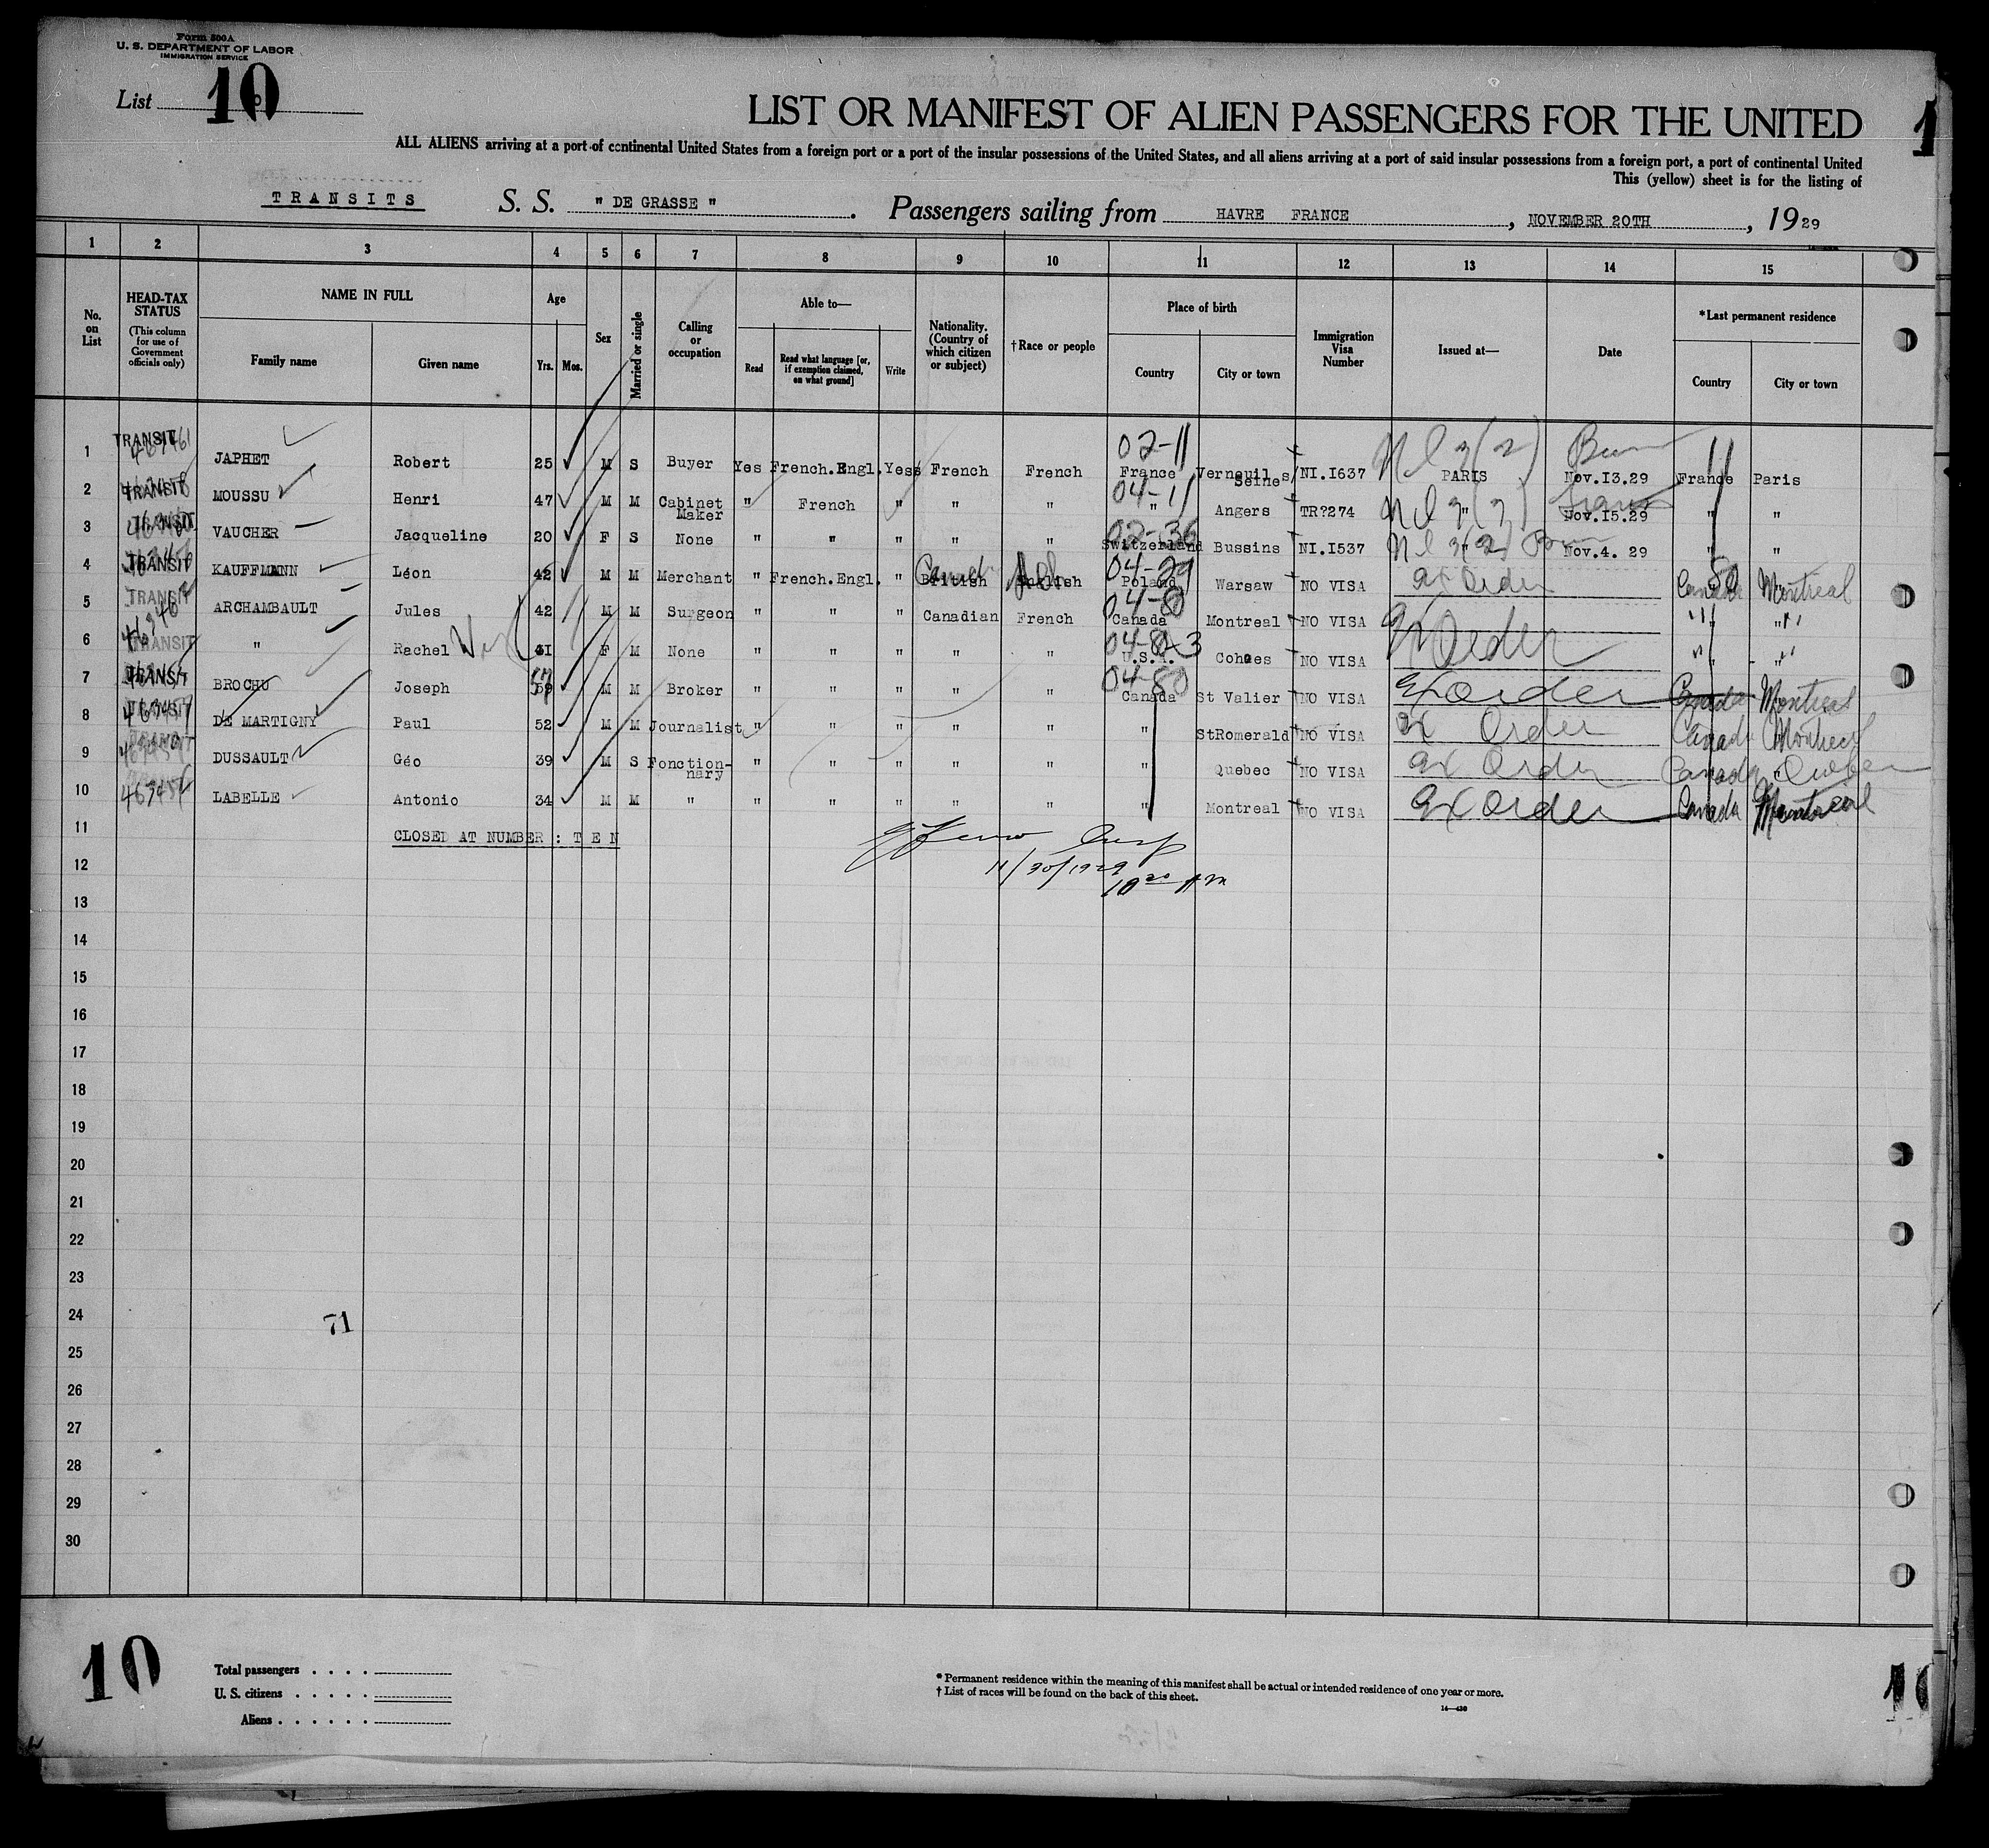 Form 500A
U. S. DEPARTMENT OF LABOR
IMMIGRATION SERVICE
List 10
LIST OR MANIFEST OF ALIEN PASSENGERS FOR THE UNITED
ALL ALIENS arriving at a port of continental United States from a foreign port or a port of the insular possessions of the United States, and all aliens arriving at a port of said insular possessions from a foreign port, a port of continental United
This (yellow) sheet is for the listing of
TRANSITS S. S. " DE GRASSE " . Passengers sailing from HAVRE FRANCE , NOVEMBER 20TH , 1929
1 2 3 4 5 6 7 8 9 10 11 12 13 14 15
No. on List
HEAD-TAX STATUS
(This column for use of Government officials only)
NAME IN FULL
Family name
Given name
Age
Yrs. Mos.
Sex
Married or single
Calling or occupation
Able to—
Read
Read what language [or, if exemption claimed, on what ground]
Write
Nationality. (Country of which citizen or subject)
†Race or people
Place of birth
Country
City or town
Immigration Visa Number
Issued at—
Date
*Last permanent residence
Country
City or town
02-11
1 TRANSIT JAPHET Robert 25 M S Buyer Yes French.Engl. Yes French French France Verneuil s/ Seine NI.I637 PARIS Nov.I3.29 France Paris
04-11
2 TRANSIT MOUSSU Henri 47 M M Cabinet Maker " French " " " " Angers TR?274 " Nov.I5.29 " "
02-36
3 TRANSIT VAUCHER Jacqueline 20 F S None " " " " " Switzerland Bussins NI.I537 " Nov.4. 29 " "
04-29
4 TRANSIT KAUFFMANN Léon 42 M M Merchant " French.Engl. " British English Poland Warsaw NO VISA Ex Order Canada Montreal
04-80
5 TRANSIT ARCHAMBAULT Jules 42 M M Surgeon " " " Canadian French Canada Montreal NO VISA " "
6 TRANSIT " Rachel 41 F M None " " " " " U.S.A. Cohoes NO VISA Ex Order " "
04-80
7 TRANSIT BROCHU Joseph M M Broker " " " " " Canada St Valier NO VISA Ex Order Canada Montreal
8 DE MARTIGNY Paul 52 M M Journalist " " " " " " StRomerald NO VISA Ex Order Canada Montreal
9 DUSSAULT Géo 39 M S Fonctionnary " " " " " " Quebec NO VISA Ex Order Canada Quebec
10 LABELLE Antonio 34 M M " " " " " " " Montreal NO VISA Ex Order Canada Montreal
11 CLOSED AT NUMBER : T E N
12 11/30/1929
10 20 AM
13
14
15
16
17
18
19
20
21
22
23
24 71
25
26
27
28
29
30
10
Total passengers
U. S. citizens
Aliens
* Permanent residence within the meaning of this manifest shall be actual or intended residence of one year or more.
† List of races will be found on the back of this sheet.
14—430